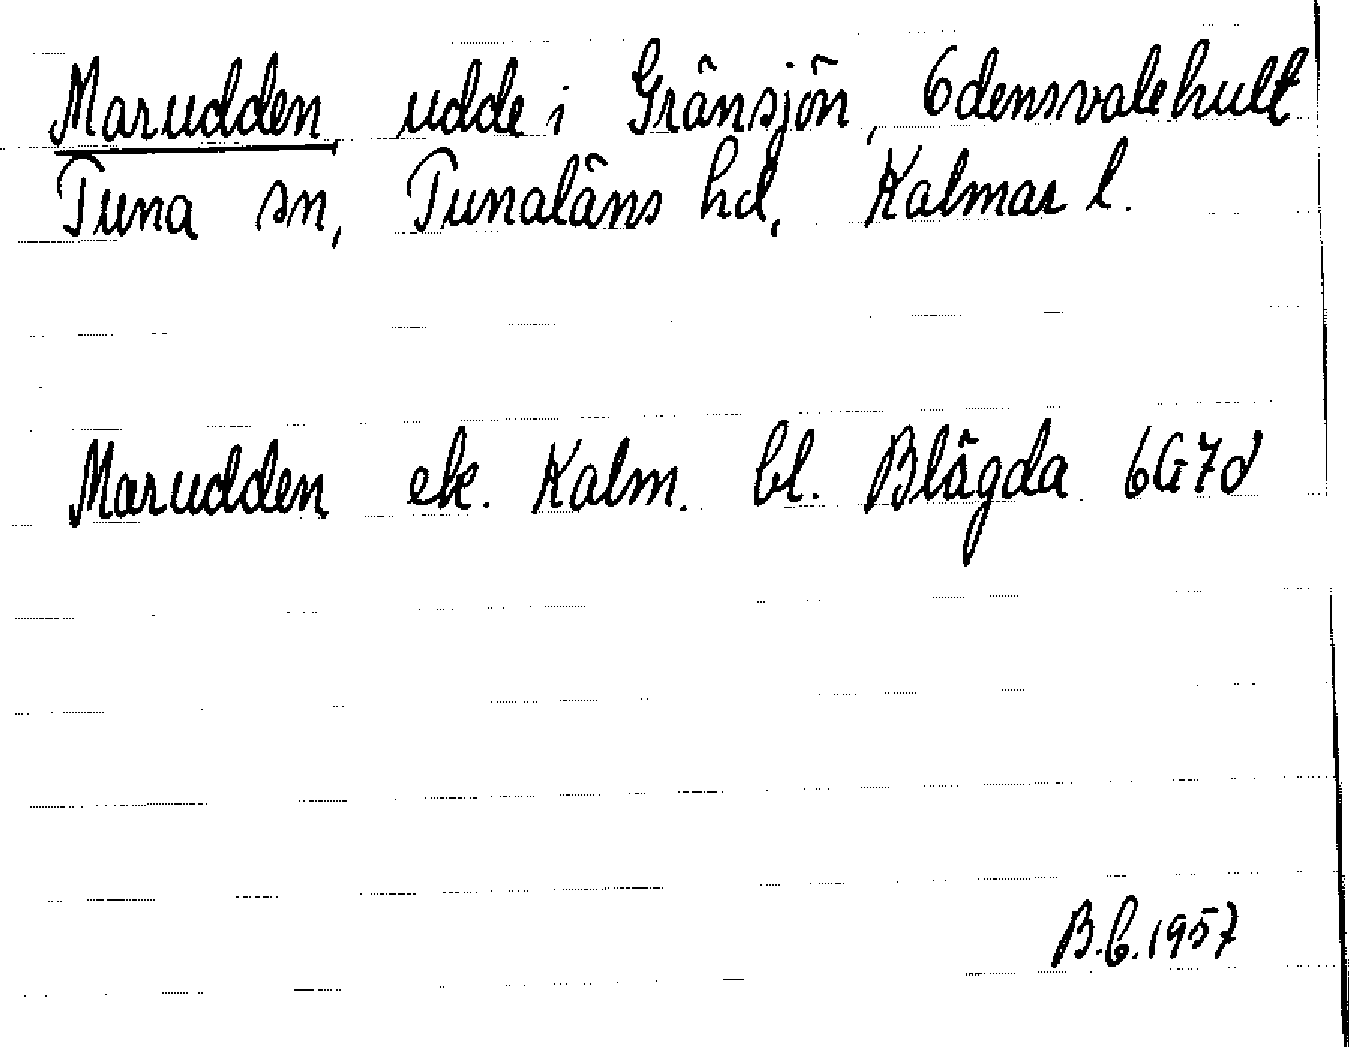 Marudden, udde i Gränsjön, Odensvalehult
Tuna sn, Tunaläns hd, Kalmar l.
Marudden ek. Kalm. bl. Blägda 6G7d
B.G. 1957